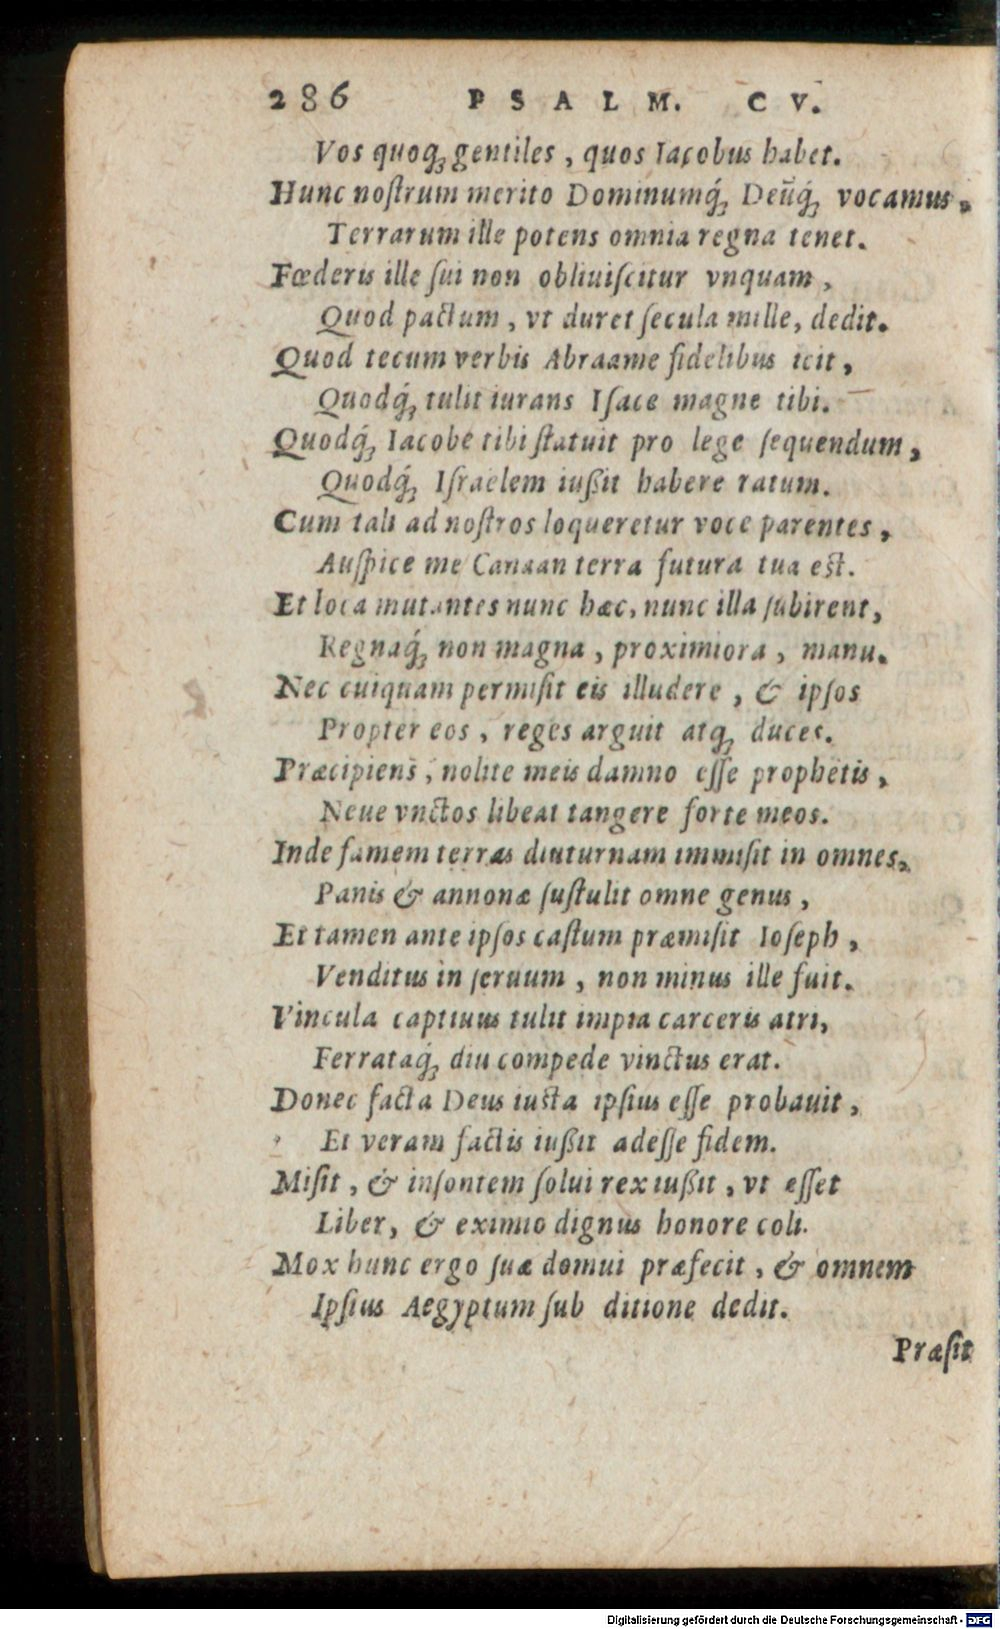 286 PSALM. CV.
Vos quoq́ꝫ gentiles, quos Iacobus habet.
Hunc noſtrum merito Dominumq́ꝫ Deũq́ꝫ vocamus,
Terrarum ille potens omnia regna tenet.
Fœderis ille ſui non obliuiſcitur vnquam,
Quod pactum, vt duret ſecula mille, dedit.
Quod tecum verbis Abraame fidelibus icit,
Quodq́ꝫ tulit iurans Iſace magne tibi.
Quodq́ꝫ Iacobe tibi ſtatuit pro lege ſequendum,
Quodq́ꝫ Iſraelem iußit habere ratum.
Cum tali ad noſtros loqueretur voce parentes,
Auſpice me Canaan terra futura tua eſt.
Et loca mutantes nunc hæc, nunc illa ſubirent,
Regnaq́ꝫ non magna, proximiora, manu.
Nec cuiquam permiſit eis illudere, & ipſos
Propter eos, reges arguit atqꝫ duces.
Præcipiens, nolite meis damno eſſe prophetis,
Neue vnctos libeat tangere forte meos.
Inde famem terras diuturnam immiſit in omnes,
Panis & annonæ ſuſtulit omne genus,
Et tamen ante ipſos caſtum præmiſit Ioſeph,
Venditus in ſeruum, non minus ille fuit.
Vincula captiuus tulit impia carceris atri,
Ferrataq́ꝫ diu compede vinctus erat.
Donec facta Deus iuſta ipſius eſſe probauit,
Et veram factis iußit adeſſe fidem.
Miſit, & inſontem ſolui rex iußit, vt eſſet
Liber, & eximio dignus honore coli.
Mox hunc ergo ſuæ domui præfecit, & omnem
Ipſius Aegyptum ſub ditione dedit.
Præſit
Digitalisierung gefördert durch die Deutsche Forschungsgemeinschaft - DFG